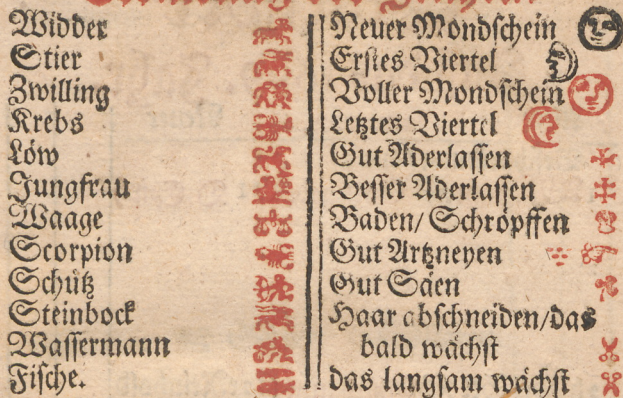 Widder
Stier
Zwilling
Krebs
Löw
Jungfrau
Waage
Scorpion
Schütz
Steinbock
Wassermann
Fische.
Neuer Mondschein
Erstes Viertel
Voller Mondschein
Letztes Viertel
Gut Aderlassen
Besser Aderlassen
Baden/ Schröpffen
Gut Artzneyen
Gut Säen
Haar abschneiden/das
bald wächst
das langsam wächst